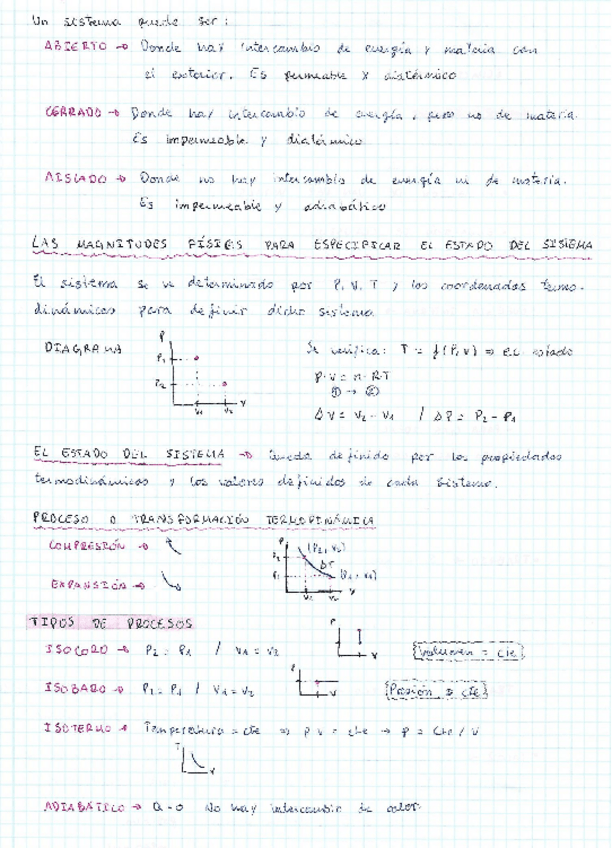 Un sistema puede ser:
ABIERTO → Donde hay intercambio de energía y materia con
el exterior. Es permeable y diatérmico
CERRADO → Donde hay intercambio de energía, pero no de materia.
Es impermeable y diatérmico
AISLADO → Donde no hay intercambio de energía ni de materia.
Es impermeable y adiabático
LAS MAGNITUDES FÍSICAS PARA ESPECIFICAR EL ESTADO DEL SISTEMA
El sistema se ve determinado por P, V, T y las coordenadas termo-
dinámicas para definir dicho sistema
DIAGRAMA
P
P1
P2
V1 V2 V
Se verifica: T = f(P,V) ⇒ ec. estado
P·V = n·R·T
① → ②
ΔV = V2 - V1 / ΔP = P2 - P1
EL ESTADO DEL SISTEMA → Queda definido por las propiedades
termodinámicas y los valores definidos de cada sistema.
PROCESO O TRANSFORMACIÓN TERMODINÁMICA
COMPRESIÓN →
EXPANSIÓN →
P
P2 (P2, V2)
ΔT
P1 (P1, V1)
V2 V1 V
TIPOS DE PROCESOS
ISOCORO → P2 = P1 / V1 = V2
P
V
Volumen = cte
ISOBARO → P2 = P1 / V1 = V2
P
V
Presión = cte
ISOTERMO → Temperatura = cte ⇒ P V = cte → P = Cte / V
T
V
ADIABÁTICO → Q = 0 No hay intercambio de calor.